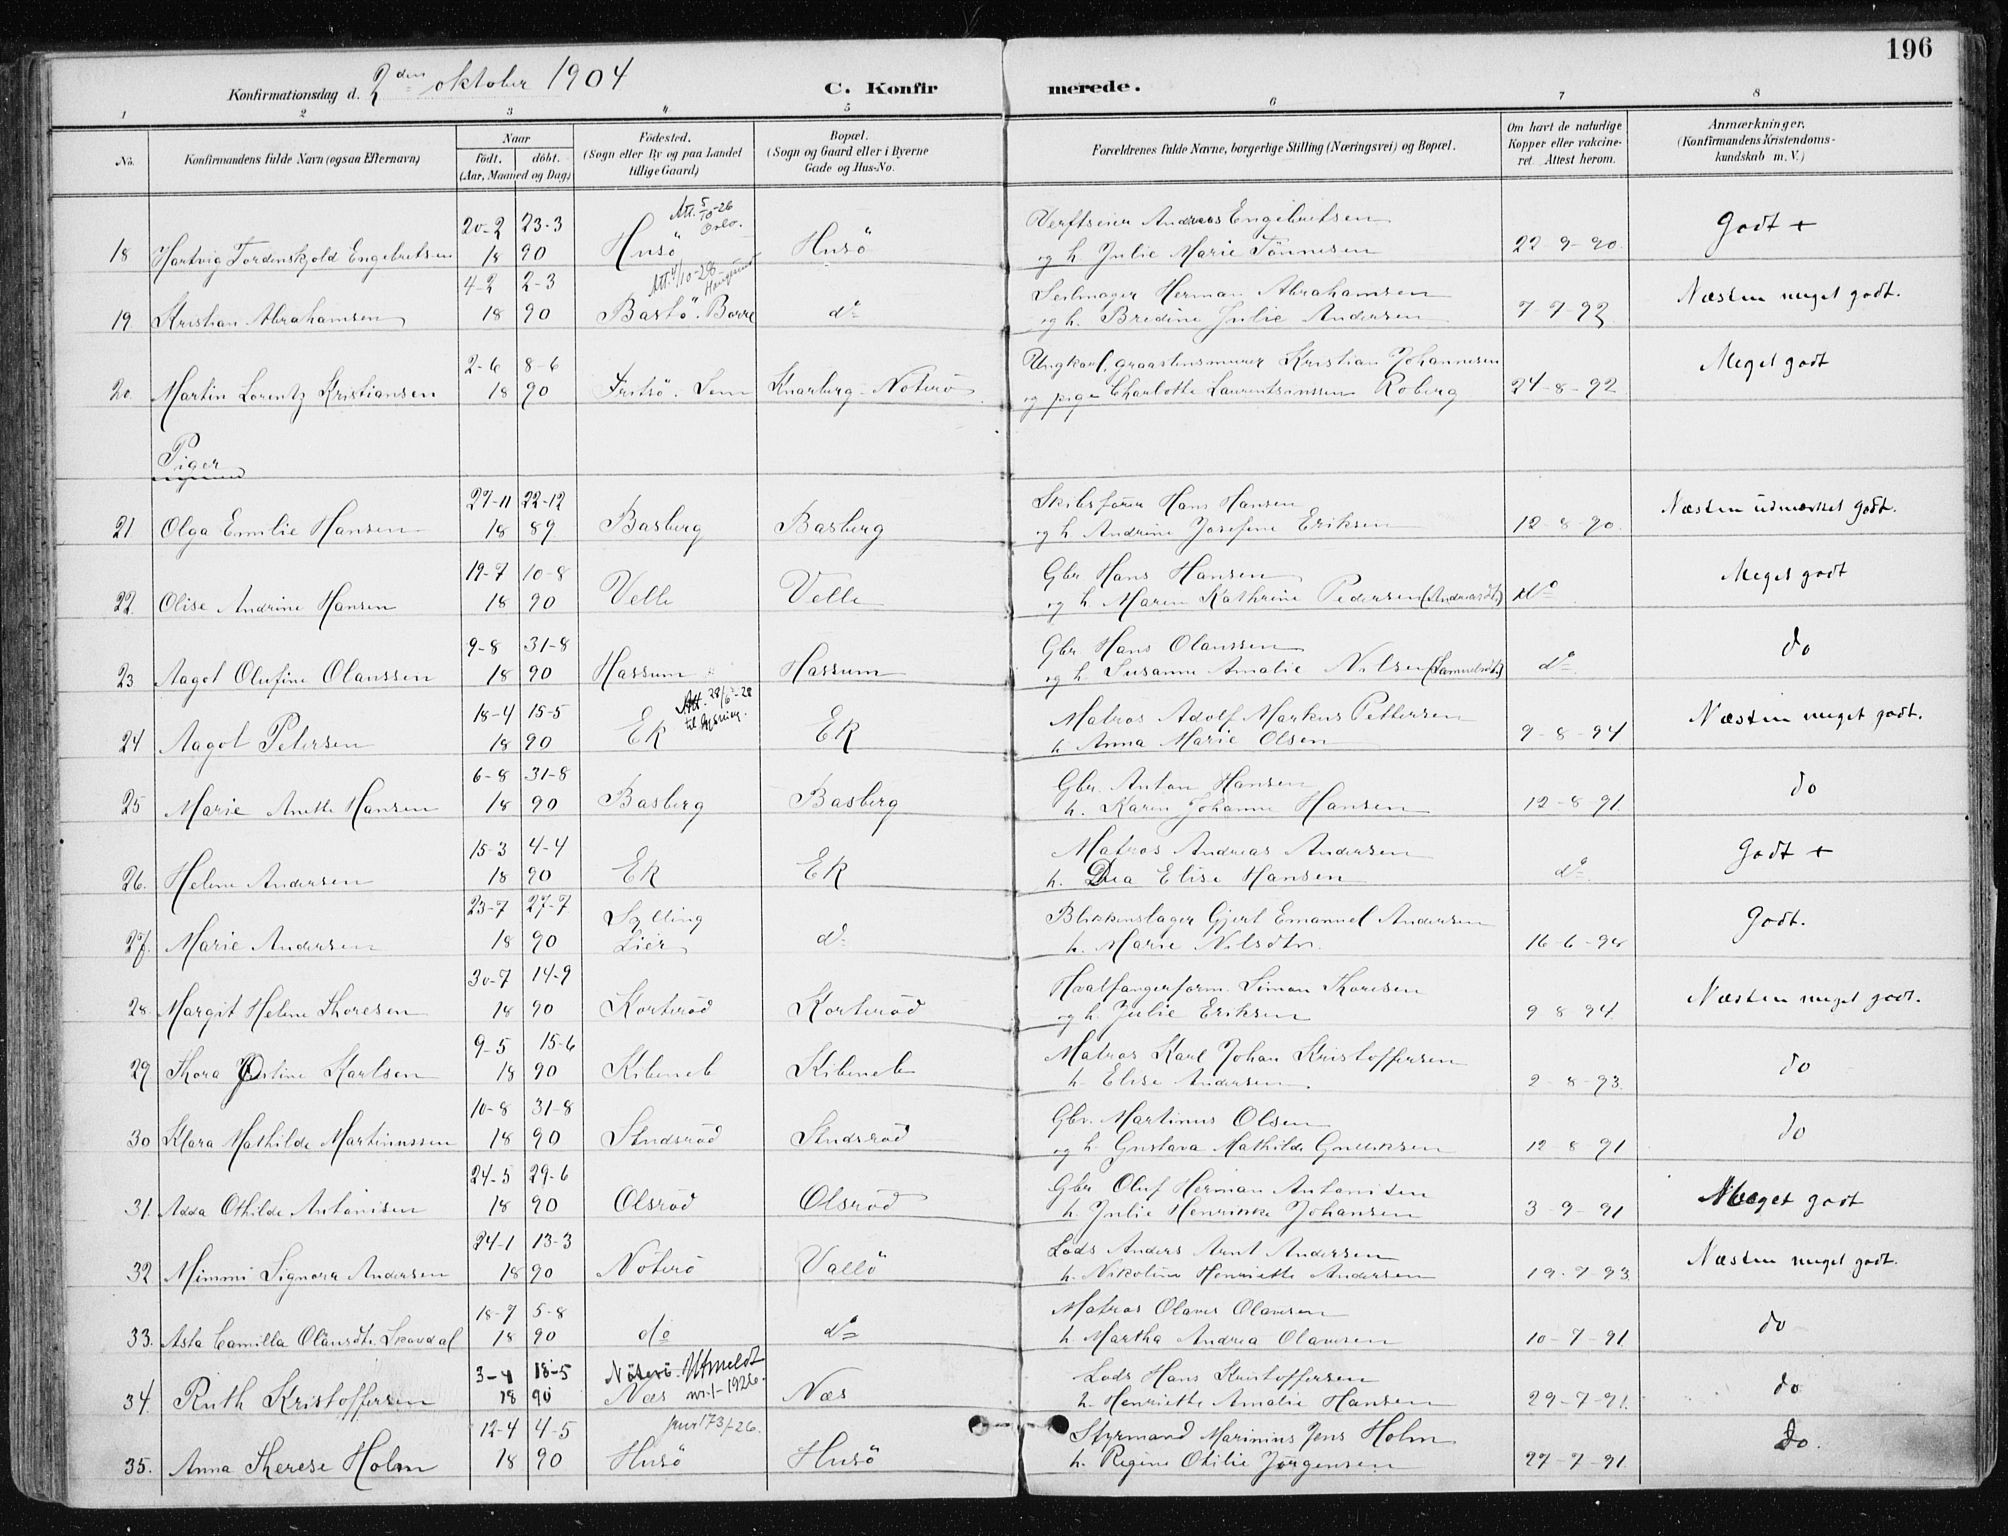 196
Konfirmationsdag d. 2den oktober 1904
C. Konfirmerede.
1 2 3 4 5 6 7 8
No.
Konfirmandens fulde Navn (ogsaa Efternavn)
Naar
født. døbt.
(Aar, Maaned og Dag)
Fødested.
(Sogn eller By og paa Landet
tillige Gaard)
Bopæl.
(Sogn og Gaard eller i Byerne
Gade og Hus-No.
Forældrenes fulde Navne, borgerlige Stilling (Næringsvei) og Bopæl.
Om havt de naturlige
Kopper eller vakcine-
ret. Attest herom.
Anmærkninger.
(Konfirmandens Kristendoms-
kundskab m. V.)
20-2 23-3 Att. 5/10-26 Oslo. Verftseier Andreas Engebretsen Godt +
18 Hartvig Tordenskjold Engebretsen 18 90 Husö Husö og h. Julie Marie Tönnesen 22-9-90.
4-2 2-3 Att. 4/10-28 Seilmager Herman Abrahamsen Næsten meget godt.
19 Kristian Abrahamsen 18 90 Bastö. Borre do og h. Bredine Julie Andersen 7-7-92
2-6 8-6 Ungkarl, graastensmurer Kristian Johannesen Meget godt
20 Martin Lorentz Kristiansen 18 90 Fritsö. Lem Knarberg-Nöterö og pige Charlotte Laurentsanssen Roberg 24-8-92
Piger
27-11 22-12 Skibsförer Hans Hansen Næsten udmærket godt.
21 Olga Emilie Hansen 18 89 Basberg Basberg og h. Andrine Josefine Eriksen 12-8-90.
19-7 10-8 Gbr Hans Hansen Meget godt
22 Olise Andrine Hansen 18 90 Velle Velle og h. Maren Kathrine Pedersen (Andreasdt) do
9-8 31-8 Gbr Hans Olanssen do
23 Aagot Olufine Olanssen 18 90 Hassum Hassum og h. Susanne Amalie Nilsen (Samuelsdt) do
18-4 15-5 Att. 28/6-28 til lysning. Matros Adolf Markus Pettersen Næsten meget godt.
24 Aagot Petersen 18 90 Ek Ek h. Anna Marie Olsen 9-8-94
6-8 31-8 Gbr. Anton Hansen do
25 Marie Anette Hansen 18 90 Basberg Basberg h. Karen Johanne Hansen 12-8-91.
15-3 4-4 Matros Andreas Andersen Godt +
26. Helene Andersen 18 90 Ek Ek h. Dea Elise Hansen do
23-7 27-7 Sylling Blikkenslager Gjert Emanuel Andersen Godt.
27. Marie Andersen 18 90 Lier do h. Marie Nilsdtr. 16-6-94
30-7 14-9 Hvalfangerform. Simon Thoresen Næsten meget godt.
28 Margit Helene Thoresen 18 90 Korteröd Korteröd og h. Julie Eriksen 9-8-94.
9-5 15-6 Matros Karl Johan Kristoffersen do
29 Thora Justine Karlsen 18 90 Kibeneb Kibeneb h. Elise Andersen 2-8-93.
10-8 31-8 Gbr. Martinus Olsen do
30 Klara Mathilde Martinussen 18 90 Sundsröd Sundsröd og h. Gustava Mathilde Gulliksen 12-8-91
24-5 29-6 Gbr Oluf Herman Antonisen Meget godt
31. Adda Othilde Antonisen 18 90 Olsröd Olsröd h. Julie Henrikke Johansen 3-9-91
24-1 13-3 Lods Anders Arnt Andersen Næsten meget godt.
32 Mimmi Signora Andersen 18 90 Nöterö Vallö h. Nikoline Henriette Andersen 19-7-93.
18-7 5-8 Matros Olaves Olavesen do
33. Asta Camilla Olansdtr. Skavdal 18 90 do do h. Martha Andrea Olavesen 10-7-91
3-4 18-5 Nöterö. Utmeldt Lods Hans Kristoffersen do
34. Ruth Kristoffersen 18 90 Næs nr. 1-1926. Næs h. Henriette Amalie Hansen 29-7-91.
12-4 4-5 Styrmand Marinius Jens Holm do.
35. Anna Therese Holm 18 90 Husö Husö h. Regine Otilie Jørgensen 27-7-91